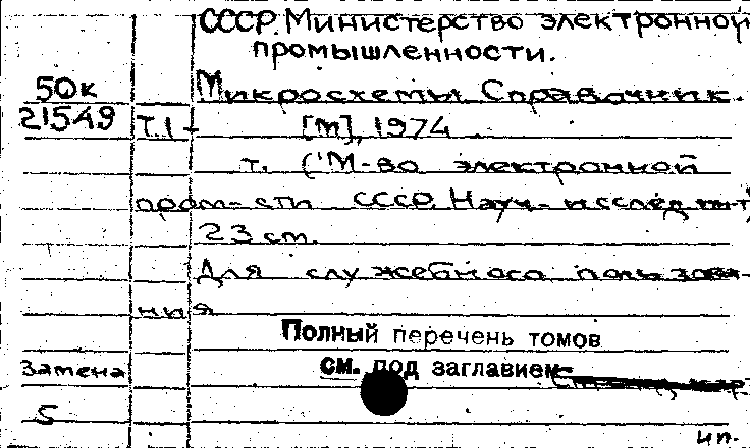 СССР. Министерство электронной
промышленности.
50к
21549
Микросхемы. Справочник.
Т.1 - [М], 1974
т. (М-во электронной
пром-сти СССР. Науч.-исслед. ин-т)
23 см.
Для служебного пользова-
ния
Полный перечень томов
см. под заглавием
Замена
5
ип.